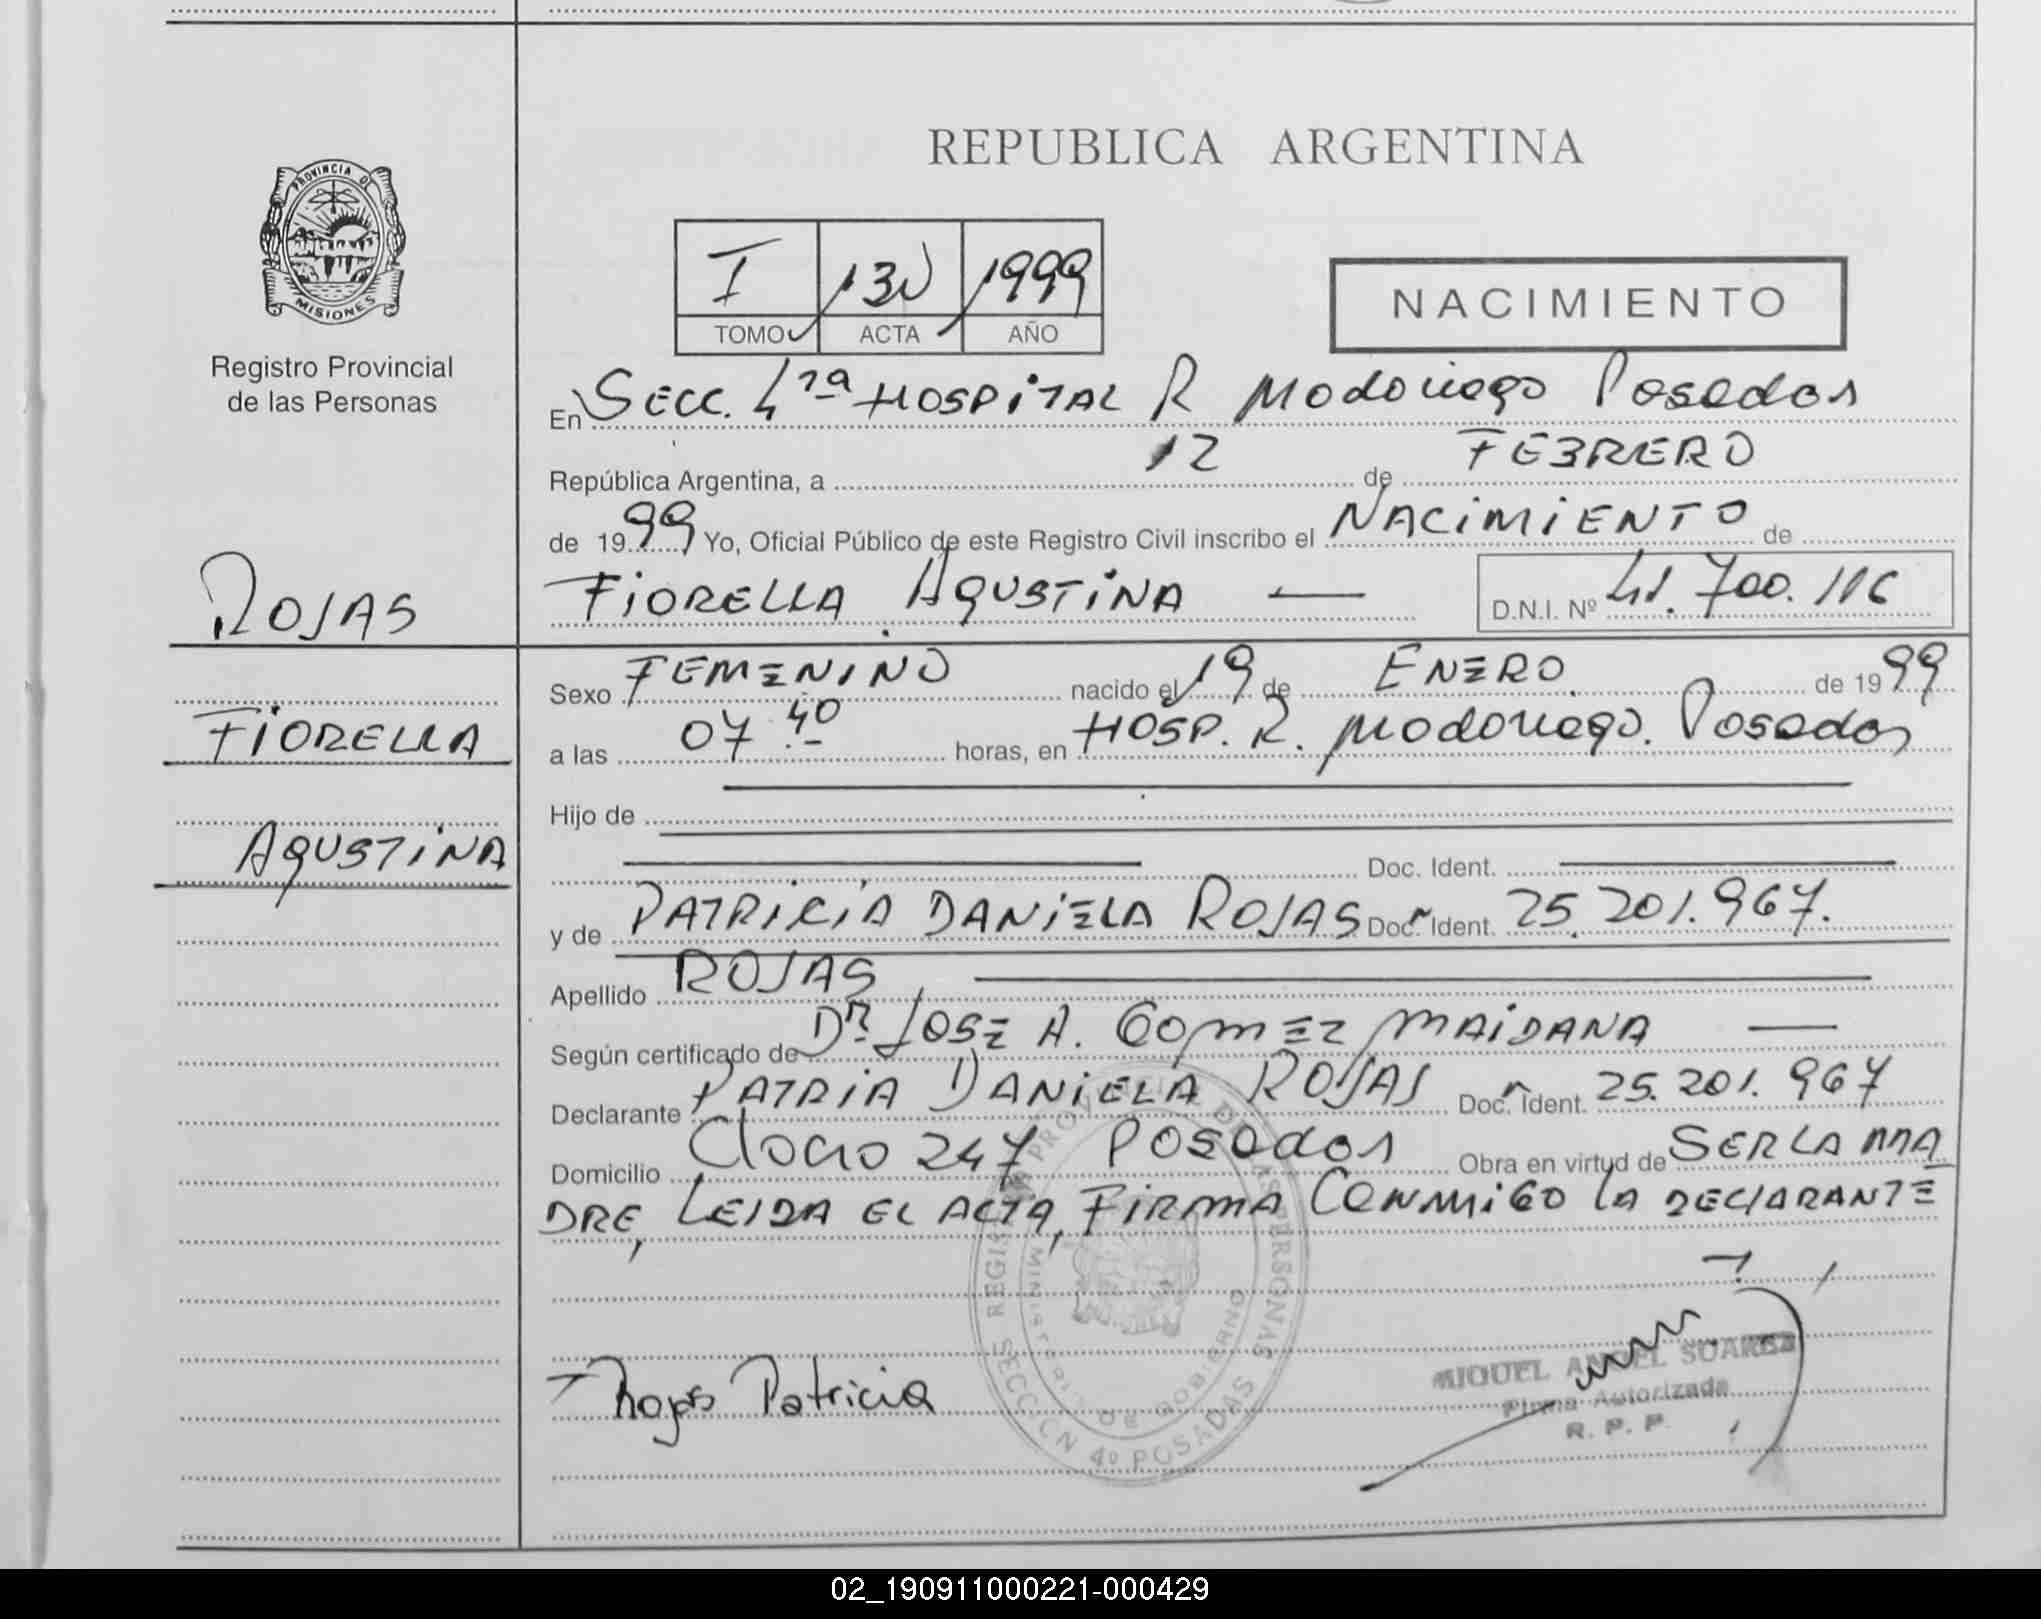 REPUBLICA ARGENTINA
PROVINCIA DE
MISIONES
Registro Provincial
de las Personas
I 130 1999
TOMO ACTA AÑO
NACIMIENTO
En SECC. 4ta HOSPITAL R Madariaga Posadas
República Argentina, a 12 de FEBRERO
de 1999 Yo, Oficial Público de este Registro Civil inscribo el NACIMIENTO de
ROJAS
FIORELLA AGUSTINA — D.N.I. Nº 41.700.116
Sexo FEMENINO nacido el 19 de ENERO de 1999
FIORELLA
a las 07.40 horas, en HOSP. R. Madariaga. Posadas
Hijo de
AGUSTINA
Doc. Ident.
y de PATRICIA DANIELA ROJAS Doc. Ident. 25.201.967.
Apellido ROJAS
Según certificado de Dr. JOSE A. GOMEZ MAIDANA —
Declarante PATRIA DANIELA ROJAS Doc. Ident. 25.201.967
Domicilio 247 Posadas Obra en virtud de SER LA MA
DRE, LEIDA EL ACTA, FIRMA CONMIGO LA DECLARANTE
REGISTRO PROVINCIAL DE LAS PERSONAS
MINISTERIO DE GOBIERNO
SECCION 4º POSADAS
Rojas Patricia
MIGUEL ANGEL SUAREZ
Firma Autorizada
R. P. P.
02_190911000221-000429